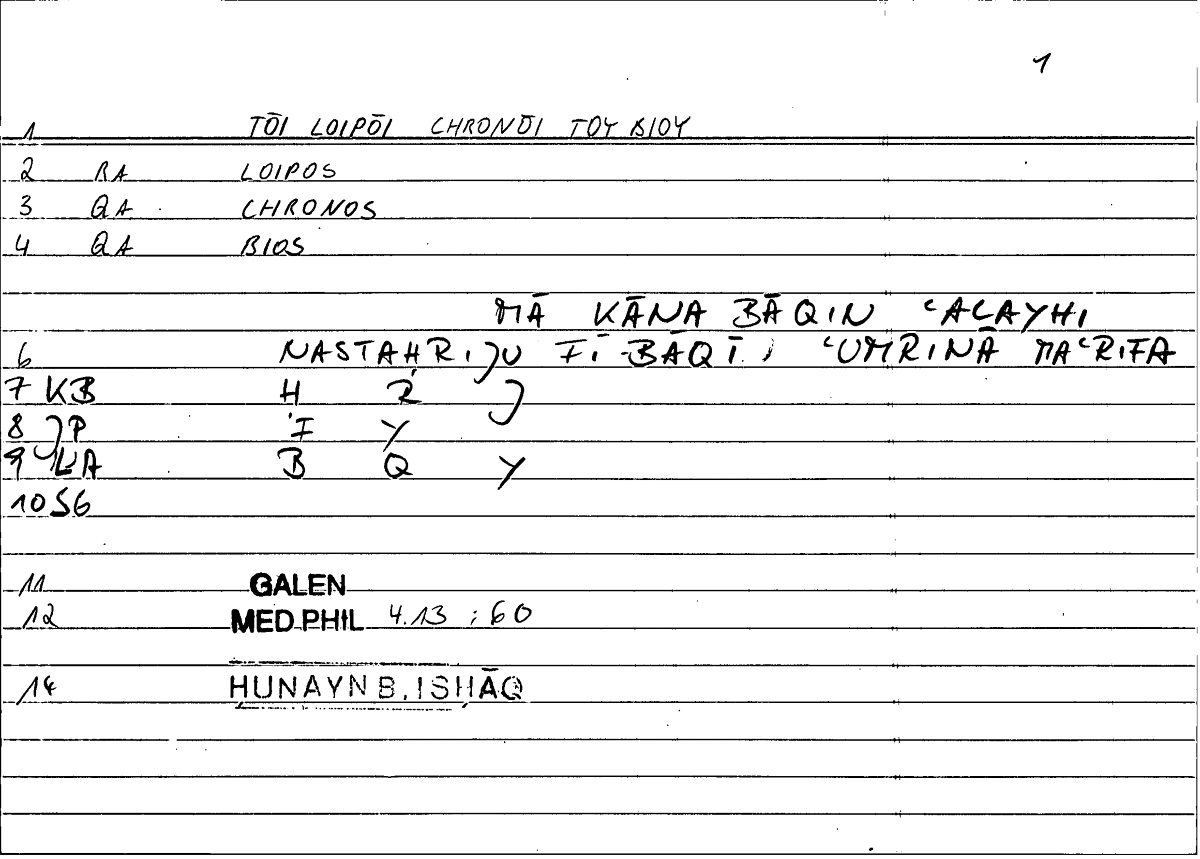 1
1 TŌI LOIPŌI CHRONŌI TOY BIOY
2 RA LOIPOS
3 QA CHRONOS
4 QA BIOS
MĀ KĀNA BĀQIN ʿALAYHI
6 NASTAḤRIJU FĪ BĀQĪ ʿUMRINĀ MAʿRIFA
7 KB H R J
8 JP F Y
9 KA B Q Y
10 SG
11 GALEN
12 MED PHIL 4.13 ; 60
14 ḤUNAYN B. ISḤĀQ